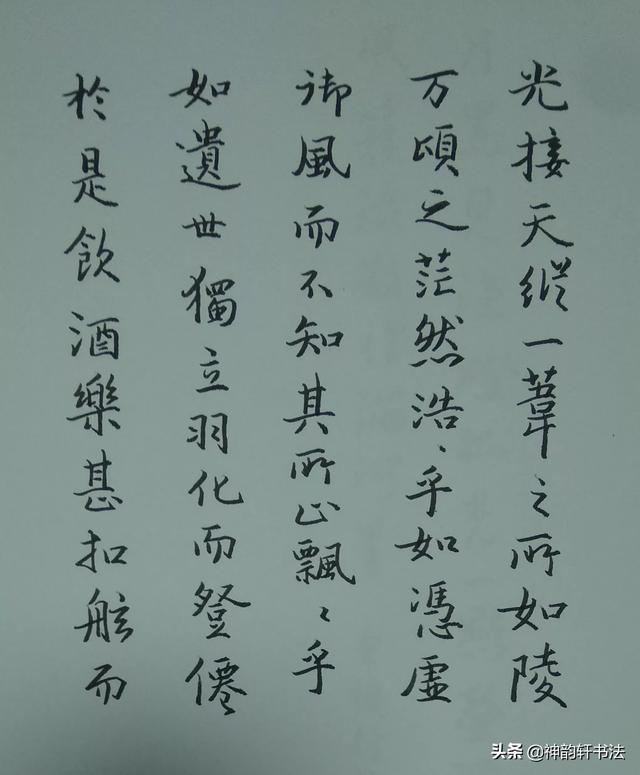 光接天縱一葦之所如陵
万頃之茫然浩〻乎如憑虛
御風而不知其所止飄〻乎
如遺世獨立羽化而登僊
於是飲酒樂甚扣舷而
头条 @神韵轩书法